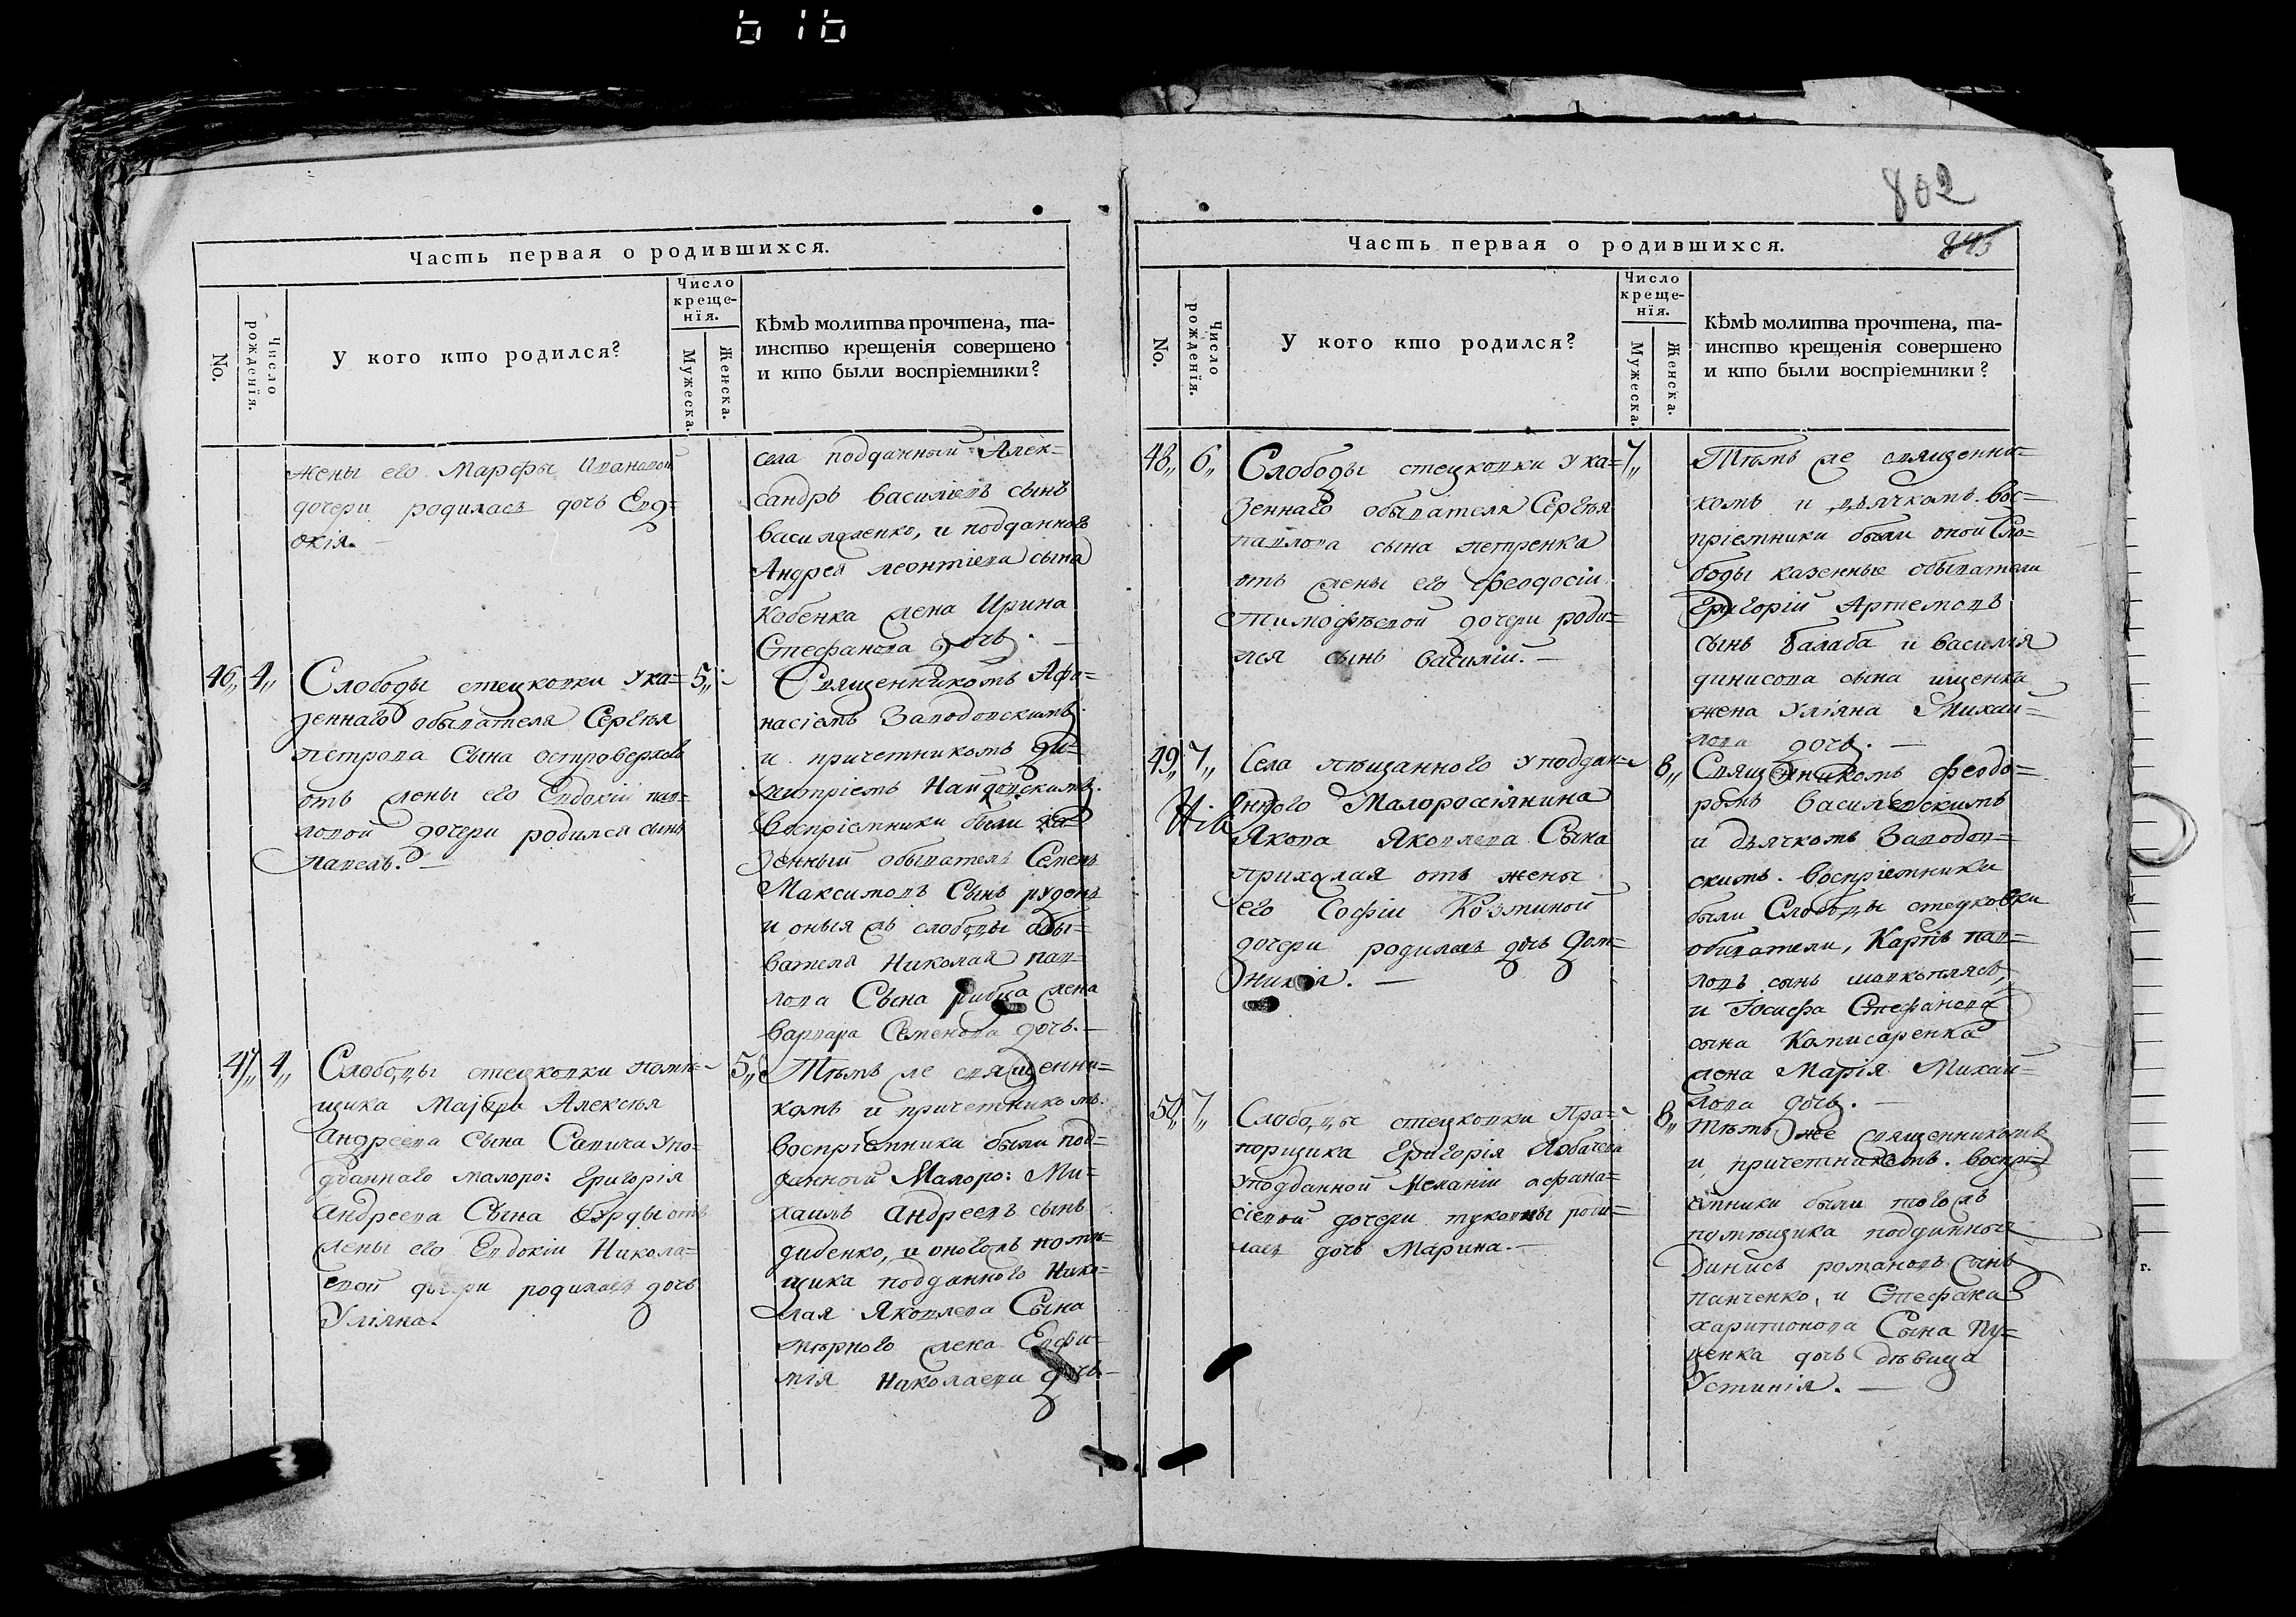 616
Часть первая о родившихся.
No.
Число рожденїя.
У кого кто родился?
Число креще-
нїя.
Мужеска.
Женска.
Кѣмъ молитва прочтена, та-
инство крещенія совершено
и кто были воспріемники?
жены его Марфы Ивановой
дочери родилась дочь Евдо-
окія.
села подданный Алек-
сандръ Василіевъ сынъ
Василенко, и подданного
Андрея Леонтіева сына
Кобенка жена Ирина
Стефанова дочь.
46„ 4„
Слободы стецковки у ка-
зеннаго обывателя Сергѣя
петрова Сына островерхова
отъ жены его Евдокіи пав-
ловой дочери родился сынъ
павелъ.
5„
Священникомъ Афо-
насіемъ Заводовскимъ
и причетникомъ Ди-
митріемъ Найдовскимъ.
Воспріемники были ка-
зенный обыватель Семенъ
Максимовъ Сынъ руденъ
и оныя жъ слободы обы-
вателя Николая пав-
лова Сына рибца жена
варвара Семенова дочь.
47„ 4„
Слободы стецковки помѣ-
щика Маіора Алексѣя
Андреева Сына Савича упо-
дданнаго малоро: Григорія
Андреева Сына бурды отъ
жены его Евдокіи Никола-
евой дочери родилась дочь
Уліяна.
5„
Тѣмъ же священни-
комъ и причетникомъ.
воспріемники были под-
данный Малоро: Ми-
хаилъ Андреевъ сынъ
диденко, и оногожъ помѣ-
щика подданного Нико-
лая Яковлева Сына
мѣрного жена Евфи-
мія Николаева дочь
802
845
Часть первая о родившихся.
No.
Число рожденїя.
У кого кто родился?
Число креще-
нїя.
Мужеска.
Женска.
Кѣмъ молитва прочтена, та-
инство крещенія совершено
и кто были воспріемники?
48„ 6„
Слободы стецковки у ка-
зеннаго обывателя Сергѣя
павлова сына петренка
отъ жены его феодосіи
Тимофѣевой дочери роди-
лся сынъ Василій.
7„
Тѣмъ же священни-
комъ и дьячкомъ. Вос-
пріемники были оной Сло-
боды казенные обыватели
Григорій Артемовъ
сынъ балаба и василія
динисова сына ищенка
жена Уліяна Михай-
лова дочь.
49„ 7„
Села пѣщанного у поддан-
нного Малороссіянина
Якова Яковлева Сына
приходая отъ жены
его Софіи Козминой
дочери родилась дочь Дом-
никія.
8„
Священникомъ феодо-
ромъ василевскимъ
и дьячкомъ Заводов-
скимъ. воспріемники
были Слободы стецковки
обыватели, Карпъ пав-
ловъ сынъ шовкоплясъ,
и Іосифа Стефанова
сына Комисаренка
жена Марія Михай-
лова дочь.
50„ 7„
Слободы стецковки Пра-
порщика Григорія Лобачева
уподданной Меланіи Афана-
сіевой дочери туковны роди-
лась дочь Марина.
8„
Тѣмъ же священникомъ
и причетникомъ. воспрі-
емники были тогожъ
помѣщика подданный
Динисъ романовъ сынъ
панченко, и Стефана
харитонова Сына пу-
ценка дочь дѣвица
Устинія.